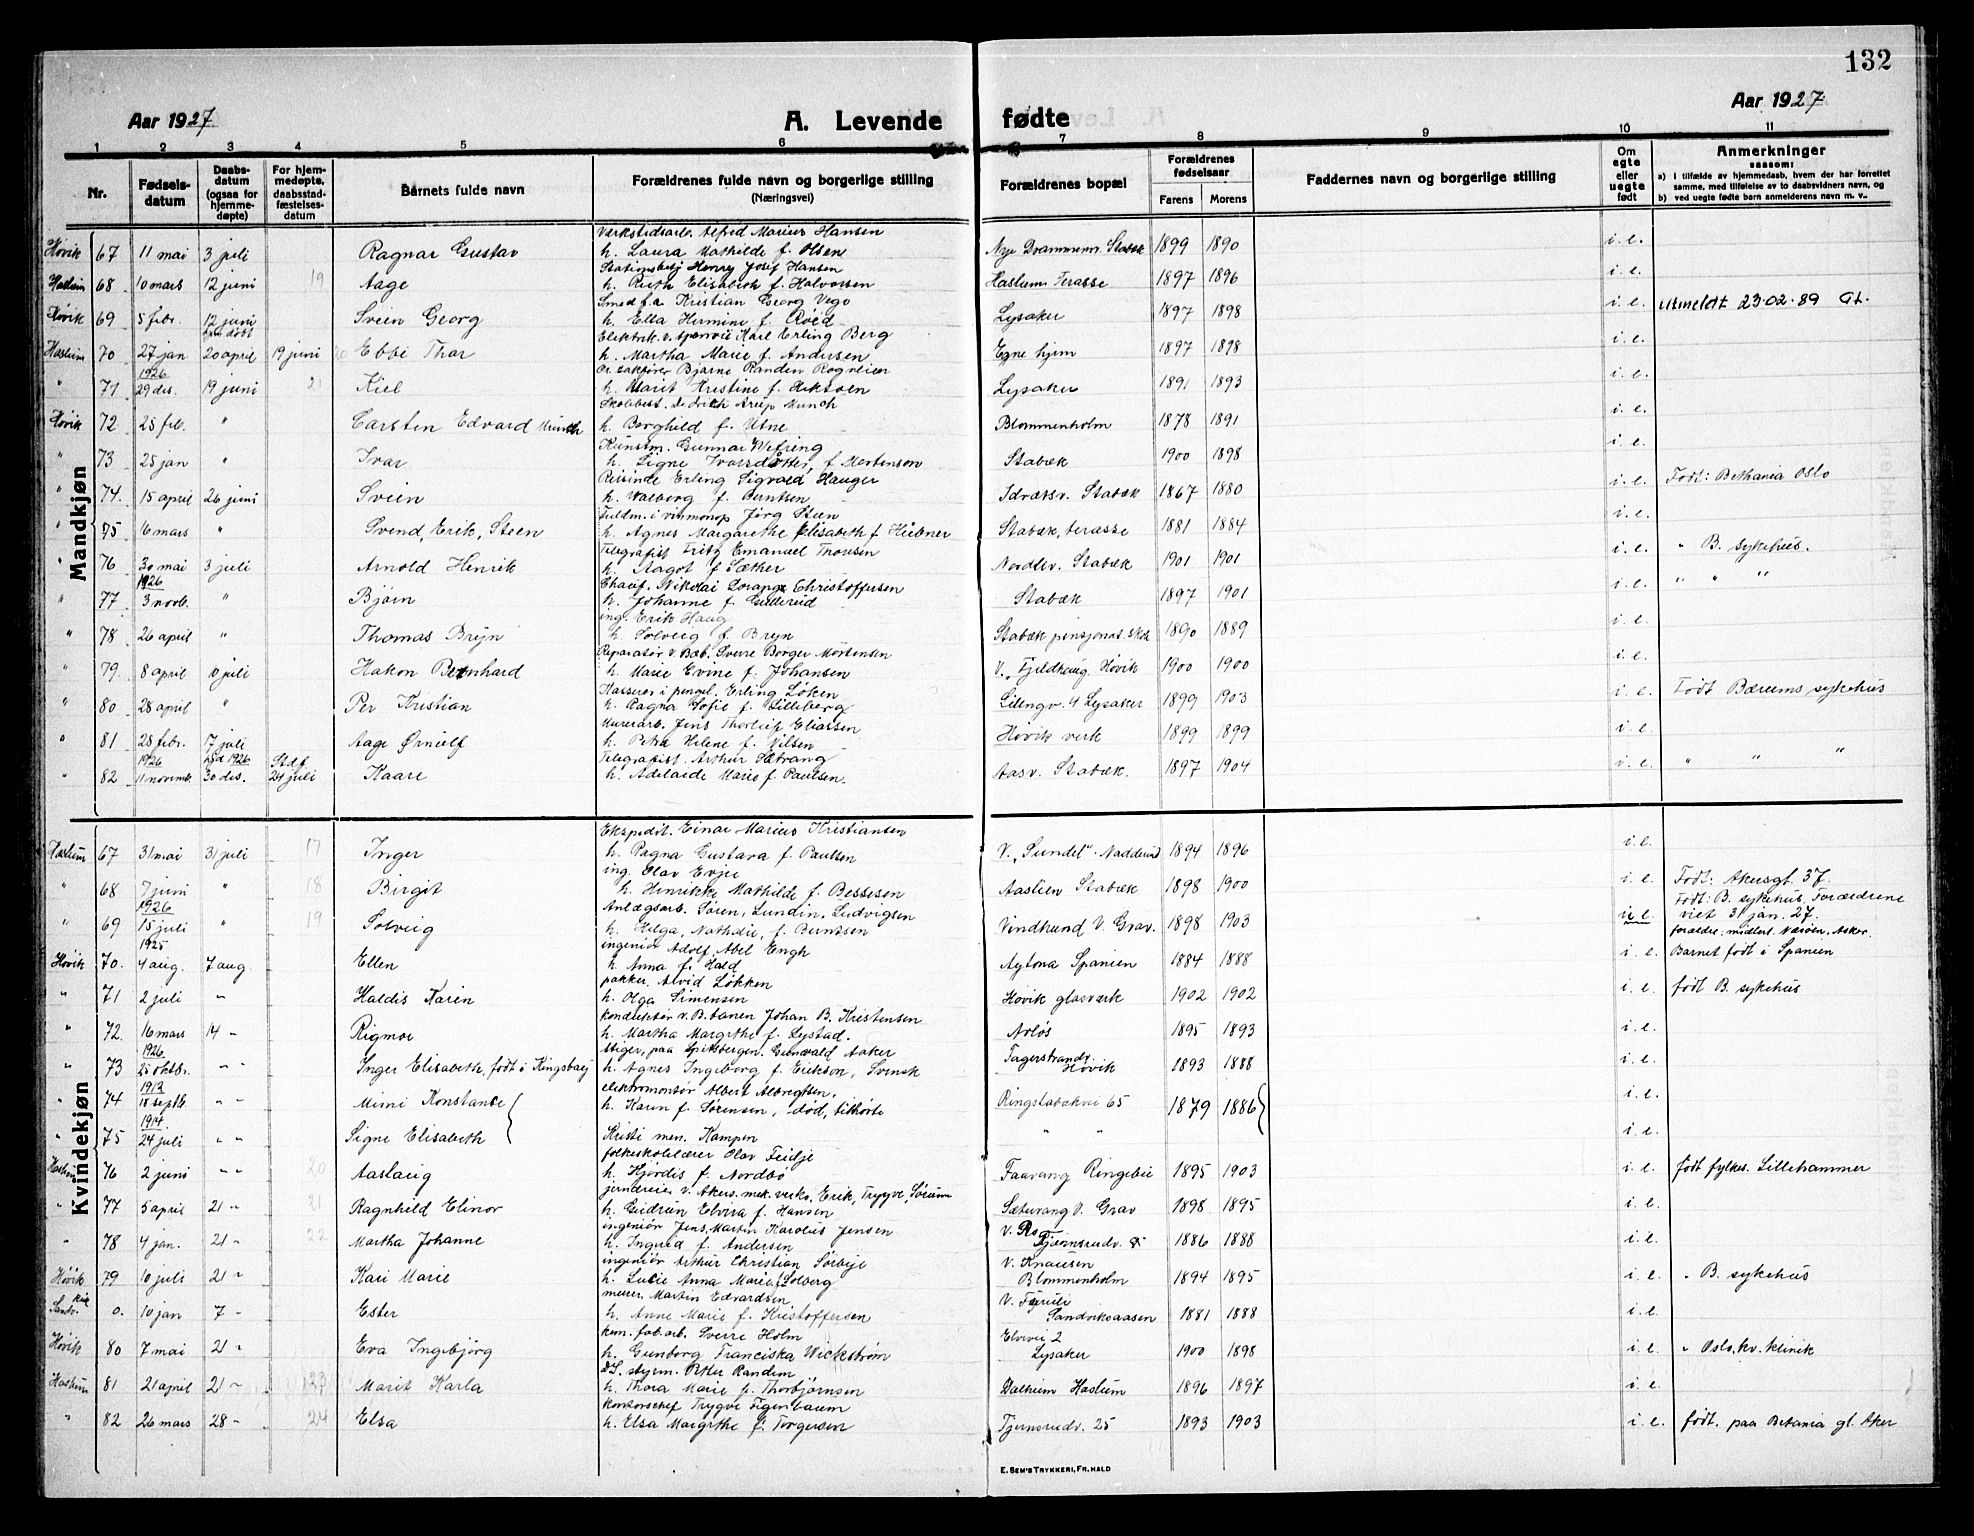 132
Aar 1927
A. Levende fødte
Aar 1927
1 2 3 4 5 6 7 8 9 10 11
Nr.
Fødsels-datum
Daabs-datum (ogsaa for hjemme-døpte)
For hjem-medøpte, daabsstad-fæstelses-datum
Barnets fulde navn
Forældrenes fulde navn og borgerlige stilling (Næringsvei)
Forældrenes bopæl
Forældrenes fødselsaar
Farens Morens
Faddernes navn og borgerlige stilling
Om egte eller uegte født
Anmerkninger
saasom:
a) I tilfælde av hjemmedaab, hvem der har forrettet samme, med tilføielse av to daabsvidners navn, og
b) ved uegte fødte barn anmelderens navn m. v.
Mandkjøn
Verkstedsarb. Alfred Marius Hansen
Høvik 67 11 mai 3 juli Ragnar Gustav h. Laura Mathilde f. Olsen Nye Drammensv. Stabæk 1899 1890 i. e.
Stationsbetj Henry Josef Hansen
Haslum 68 10 mars 12 juni 19 Aage h. Ruth Elisabeth f. Halvorsen Haslum Terasse 1897 1896 i. e.
Smed f.a. Kristian Georg Vego
Høvik 69 5 febr. 12 juni Svein Georg h. Ella Hermine f. Lysaker 1897 1898 i. e. Utmeldt 23.02.89
Karl Erling Berg
Haslum 70 27 jan 20 april 19 juni 20 Ebbe Thor h. Martha Marie f. Andersen Egne hjem 1897 1898 i. e.
1926 Or. sakfører Bjarne Randen Rogneien
" 71 29 des. 19 juni 21 Kiel h. Marit Kristine f. Lysaker 1891 1893 i. e.
Skolebest. Didrik Arup Munch
Høvik 72 25 feb. " Carsten Edvard Munch h. Borghild f. Utne Blommenholm 1878 1891 i. e.
Kunstm. Gunnar Wefring
" 73 25 jan " Ivar h. Signe Ivarsdotter, f. Mortenson Stabæk 1900 1898 i. e.
Reisende Erling Sigvald Hauger
" 74. 15 april 26 juni Svein h. Valborg f. Berntsen Idrætsv. Stabæk 1867 1880 i. e. Født: Bethania Oslo
Fuldm. i vinmonop Jørg Steen
" 75 16 mars " Svend, Erik, Steen h. Agnes Margarethe Elisabeth f Hübner Stabæk, terasse 1881 1884 i. e.
Telegrafist Fritz Emanuel Thoresen
" 76 30 mai 3 juli Arnold Henrik h. Aagot f Sæther Nordlv. Stabæk 1901 1901 i. e. " B. sykehus.
1926 Chauf. Nikolai Lorange Christoffersen
" 77 3 novb. " Bjørn h. Johanne f. Gullerud Stabæk 1897 1901 i. e. " " "
ing. Erik Haug
" 78 26 april " Thomas Bryn h. Solveig f. Bryn Stabæk pensjonat. 1890 1889 i. e.
Reparatør v. Bæb. Sverre Borger Mortensen
" 79. 8 april 10 juli Hakon Bernhard h. Marie Evine f. Johansen V. „Fjeldhaug Høvik 1900 1900 i. e.
Kasserer i pengel. Erling Løken
" 80 28 april " Per Kristian h. Ragna Sofie f. Lilleberg Lillengv. 4 Lysaker 1899 1903 i. e. Født Bærums sykehus
Murerarb. Jens Thorleif Eliassen
" 81 28 febr. 7 juli Aage Ørnulf h. Petra Helene f. Nilsen Høvik verk 1899 1899 i. e.
1926 1926 Stdf. Telegrafist. Arthur Sætrang
" 82 11 novemb. 30 des. 24 juli Kaare h. Adelaide Marie f Paulsen. Aasv. Stabæk. 1897 1904 i. e. " " "
Kvindekjøn
Ekspedit. Einar Marius Kristiansen
Haslum 67 31 mai 31 juli 17 Inger h. Ragna Gustava f. Paulsen V. „Sundet". Nadderud 1894 1896 i. e.
ing. Olav Evje
" 68 7 juni " 18 Birgit h. Henrikke Mathilde f. Bessesen Aastien Stabæk 1898 1900 i. e. Født: Akersgt. 37.
1926 Anlægsarb. Søren, Lundin, Ludvigsen Født: B. sykehus. Forældrene
" 69 15 juli " 19 Solveig h. Helga, Nathalie, f. Berntsen Vindhund V. Grav. 1898 1903 i. e. viet 31 jan. 27.
forældre: midlert. Næsøen, Asker.
1925 ingeniør Adolf, Abel Engh
Høvik 70. 4 aug. 7 aug. Ellen h. Anna f. Hald Aytona Spanien 1884 1888 i. e. Barnet født i Spanien
pakker. Arvid Løkken
" 71 2 juli " Haldis Karin h. Olga Simensen Høvik glasverk 1902 1902 i. e. født B. sykehus
konduktør v. B. banen Johan B. Kristensen
" 72. 16 mars 14 - Rigmor h. Martha Margrthe f. Lystad. Avløs 1895 1893 i. e.
1926 stiger, paa Spitsbergen. Gunvald Aaker
" 73 25 oktbr. " " Inger Elisabeth, født i Kingsbay h. Agnes Ingeborg f. Erikson, Svensk Høvik 1893 1888 i. e.
1913 elektromontør Albert Albregtsen.
" 74 18 septb. " " Mimi Konstanse h. Karen f. Sørensen, død, tilhørte Ringstabækvei 65 1879 1886 i. e.
1914
" 75 24 juli " " Signe Elisabeth Kristi men. Kampen " " i. e.
folkeskolelærer Olav Feidje
Haslum 76 2 juni " " 20 Aaslaug h. Hjørdis f. Nordbø Faavang Ringebu 1895 1903 i. e. født fylkes. Lillehammer
jerndreier v. Akers. mek. verks, Erik, Trygve, Sørum
" 77 5 april 21 " 21 Ragnhild Elinor h. Gudrun Elvira f. Hansen Sætervang V. Grav 1898 1895 i. e.
ingeniør Jens, Martin Karolus Jensen
" 78 4 jan. 21 " 22 Martha Johanne h. Ingrid f. Andersen Tjernsrudv. 1886 1888 i. e.
ingeniør Arthur Christian Sørbye V. Knausen
Høvik 79 10 juli 21 " Kari Marie h. Lucie Anna Marie f Solberg Blommenholm 1894 1895 i. e. „ B. sykehus
murer Martin Edvardsen
Sandv. 0. 10 jan 7 - Ester h. Anne Marie f. Kristoffersen Sandviksaasen 1881 1888 i. e.
kem. fab. arb. Sverre Holm Elvevei 2
Høvik 80 7 mai 21 " Eva Ingebjørg h. Gunborg Franciska Wickstrøm Lysaker 1900 1898 i. e. „ Oslo. kv. klinik
DS. styrm. Peter Randem
Haslum 81 21 april 21 - 23 Marit Karla h. Thora Marie f. Thorbjørnsen Dalheim Haslum 1896 1897 i. e.
kontorschef Trygve Figenbaum
" 82 26 mars 28 - 24 Elsa h. Elsa Margrthe f. Torgersen Tjernsrudv. 25 1893 1903 i. e. født. paa Betania gl. Aker
E. SEM'S TRYKKERI, FR. HALD